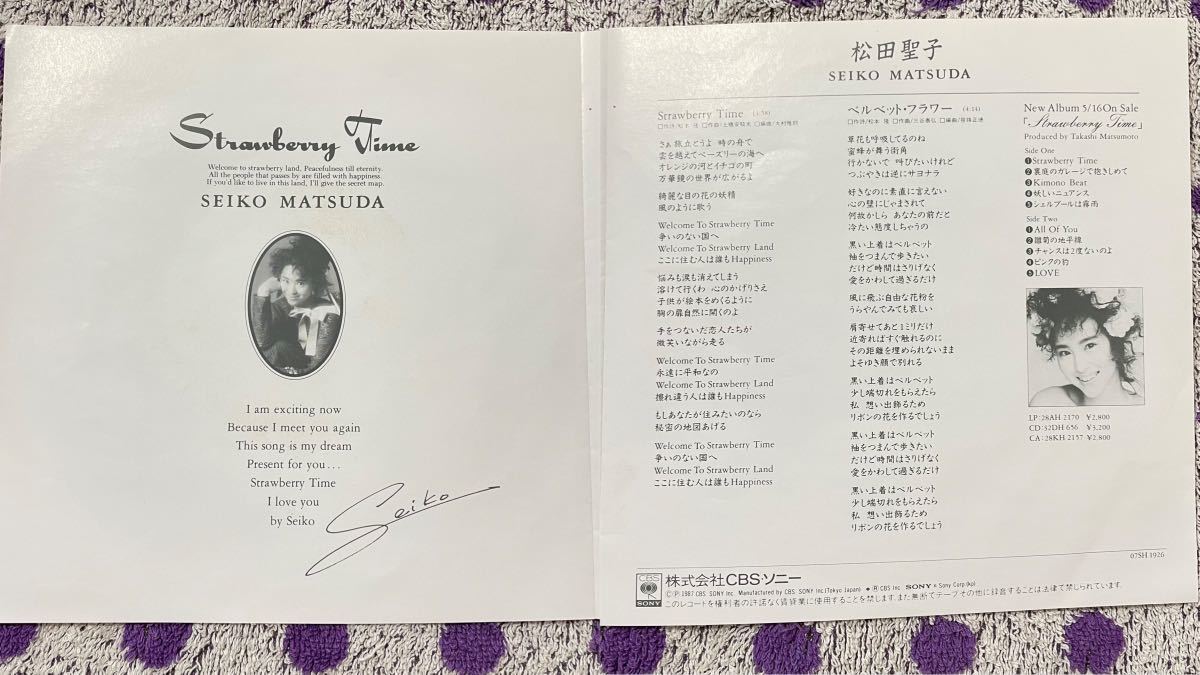 Strawberry Time
Welcome to strawberry land, Peacefulness till eternity.
All the people that passes by are filled with happiness.
If you'd like to live in this land, I'll give the secret map.
SEIKO MATSUDA
I am exciting now
Because I meet you again
This song is my dream
Present for you...
Strawberry Time
I love you
by Seiko
Seiko
松田聖子
SEIKO MATSUDA
Strawberry Time (4:58)
□作詩/松本 隆 □作曲/土橋安騎夫 □編曲/大村雅朗
さぁ旅立とうよ 時の舟で
雲を越えてペーズリーの海へ
オレンジの河とイチゴの町
万華鏡の世界が広がるよ
綺麗な目の花の妖精
風のように歌う
Welcome To Strawberry Time
争いのない国へ
Welcome To Strawberry Land
ここに住む人は誰もHappiness
悩みも涙も消えてしまう
溶けて行くわ 心のかげりさえ
子供が絵本をめくるように
胸の扉自然に開くのよ
手をつないだ恋人たちが
微笑いながら走る
Welcome To Strawberry Time
永遠に平和なの
Welcome To Strawberry Land
擦れ違う人は誰もHappiness
もしあなたが住みたいのなら
秘密の地図あげる
Welcome To Strawberry Time
争いのない国へ
Welcome To Strawberry Land
ここに住む人は誰もHappiness
ベルベット・フラワー (4:14)
□作詩/松本 隆 □作曲/三谷泰弘 □編曲/笹路正徳
草花も呼吸してるのね
蜜蜂が舞う街角
行かないで 叫びたいけれど
つぶやきは逆にサヨナラ
好きなのに素直に言えない
心の壁にじゃまされて
何故かしら あなたの前だと
冷たい態度しちゃうの
黒い上着はベルベット
袖をつまんで歩きたい
だけど時間はさりげなく
愛をかわして過ぎるだけ
風に飛ぶ自由な花粉を
うらやんでみても哀しい
肩寄せてあと1ミリだけ
近寄ればすぐ触れるのに
その距離を埋められないまま
よそゆき顔で別れる
黒い上着はベルベット
少し端切れをもらえたら
私 想い出飾るため
リボンの花を作るでしょう
黒い上着はベルベット
袖をつまんで歩きたい
だけど時間はさりげなく
愛をかわして過ぎるだけ
黒い上着はベルベット
少し端切れをもらえたら
私 想い出飾るため
リボンの花を作るでしょう
New Album 5/16 On Sale
「Strawberry Time」
Produced by Takashi Matsumoto
Side One
❶Strawberry Time
❷裏庭のガレージで抱きしめて
❸Kimono Beat
❹妖しいニュアンス
❺シェルブールは霧雨
Side Two
❶All Of You
❷雛菊の地平線
❸チャンスは2度ないのよ
❹ピンクの豹
❺LOVE
LP:28AH 2170 ¥2,800
CD:32DH 656 ¥3,200
CA:28KH 2157 ¥2,800
07SH 1926
CBS
SONY
株式会社CBS・ソニー
Ⓒ Ⓟ 1987 CBS SONY Inc. Manufactured by CBS SONY Inc.(Tokyo Japan) ◆® CBS Inc. SONY ® Sony Corp.(kp)
このレコードを権利者の許諾なく賃貸業に使用することを禁じます。また無断でテープその他に録音することは法律で禁じられています。